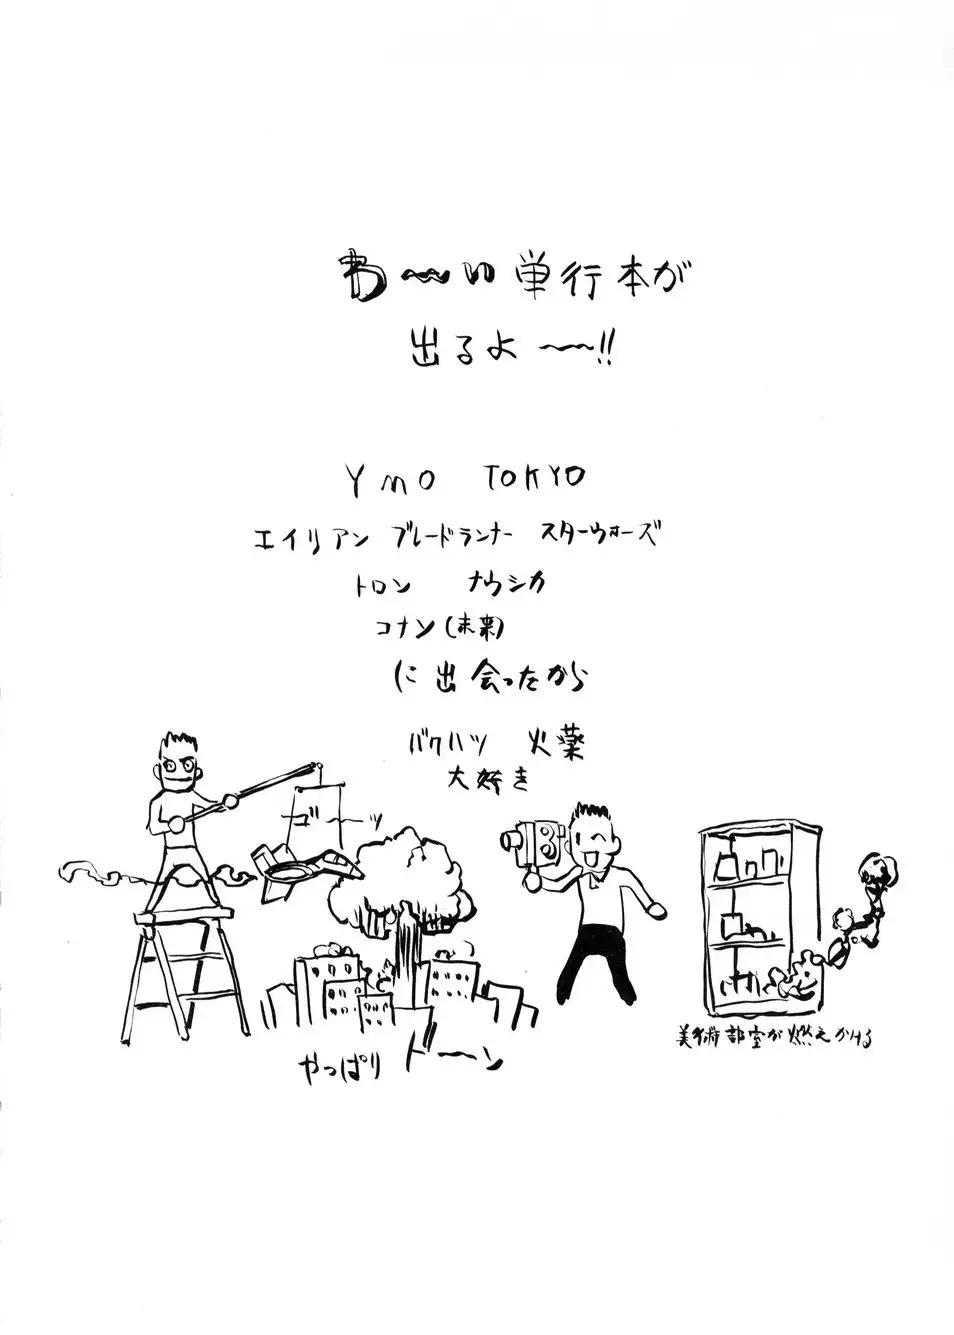 わ〜〜い単行本が
出るよ〜〜!!
YMO TOKYO
エイリアン ブレードランナー スターウォーズ
トロン ナウシカ
コナン(未来)
に出会ったから
バクハツ 火薬
大好き
ゴーッ
8
美術部室が燃えかける
やっぱり ドーーン